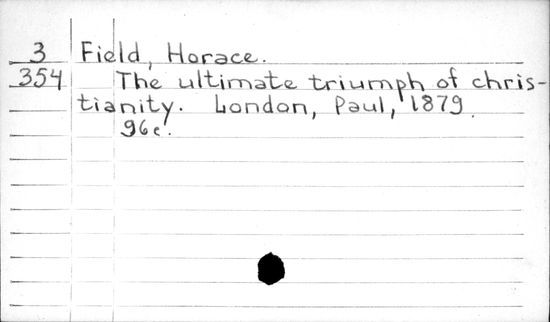 3 Field, Horace.
354 The ultimate triumph of chris-
tianity. London, Paul, 1879.
96c.